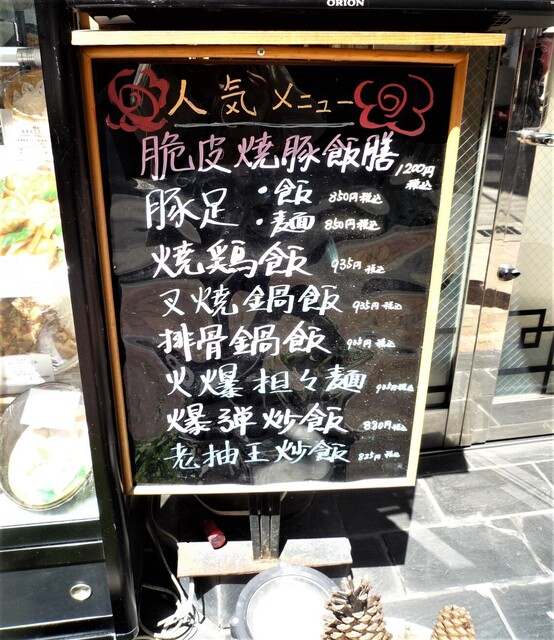 ORION
人気メニュー
脆皮焼豚飯膳 1200円税込
豚足 ・飯 850円税込
・麺 850円税込
焼鶏飯 935円税込
叉焼鍋飯 935円税込
排骨鍋飯 935円税込
火爆担々麺 905円税込
爆弾炒飯 880円税込
老抽王炒飯 825円税込